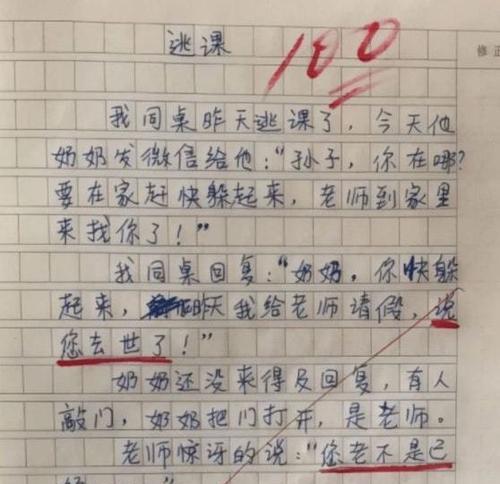 逃课
100
修正
我同桌昨天逃课了，今天他
奶奶发微信给他："孙子，你在哪？
要在家赶快躲起来，老师到家里
来找你了！"
我同桌回复："奶奶，你快躲
起来，昨天我给老师请假，说
您去世了！"
奶奶还没来得及回复，有人
敲门，奶奶把门打开，是老师。
老师惊讶的说："您老不是已